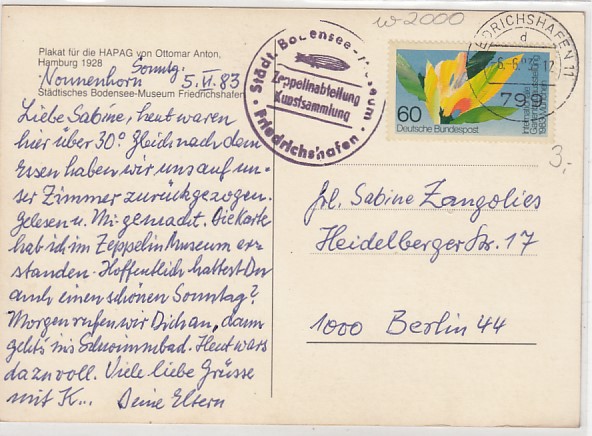 w-2000
Plakat für die HAPAG von Ottomar Anton,
Hamburg 1928
Nonnenhorn Sonntg. 5.VI.83
Städtisches Bodensee-Museum Friedrichshafen
Liebe Sabine, heut waren
hier über 30°. Gleich nach dem
Essen haben wir uns auf un-
ser Zimmer zurückgezogen.
Gelesen u. Mi- gemacht. Die Karte
hab ich im Zeppelin Museum er-
standen. Hoffentlich hattest Du
auch einen schönen Sonntag?
Morgen rufen wir Dich an, dann
geht's ins Schwimmbad. Heut wars
da zu voll. Viele liebe Grüsse
mit K... Deine Eltern
Städt. Bodensee-Museum
Zeppelinabteilung
Kunstsammlung
Friedrichshafen
FRIEDRICHSHAFEN 11
d
-6.-6.83-12
799
60
Deutsche Bundespost
Internationale
Gartenbauausstellung
1983 München
3,-
Frl. Sabine Zangolies
Heidelberger Str. 17
1000 Berlin 44